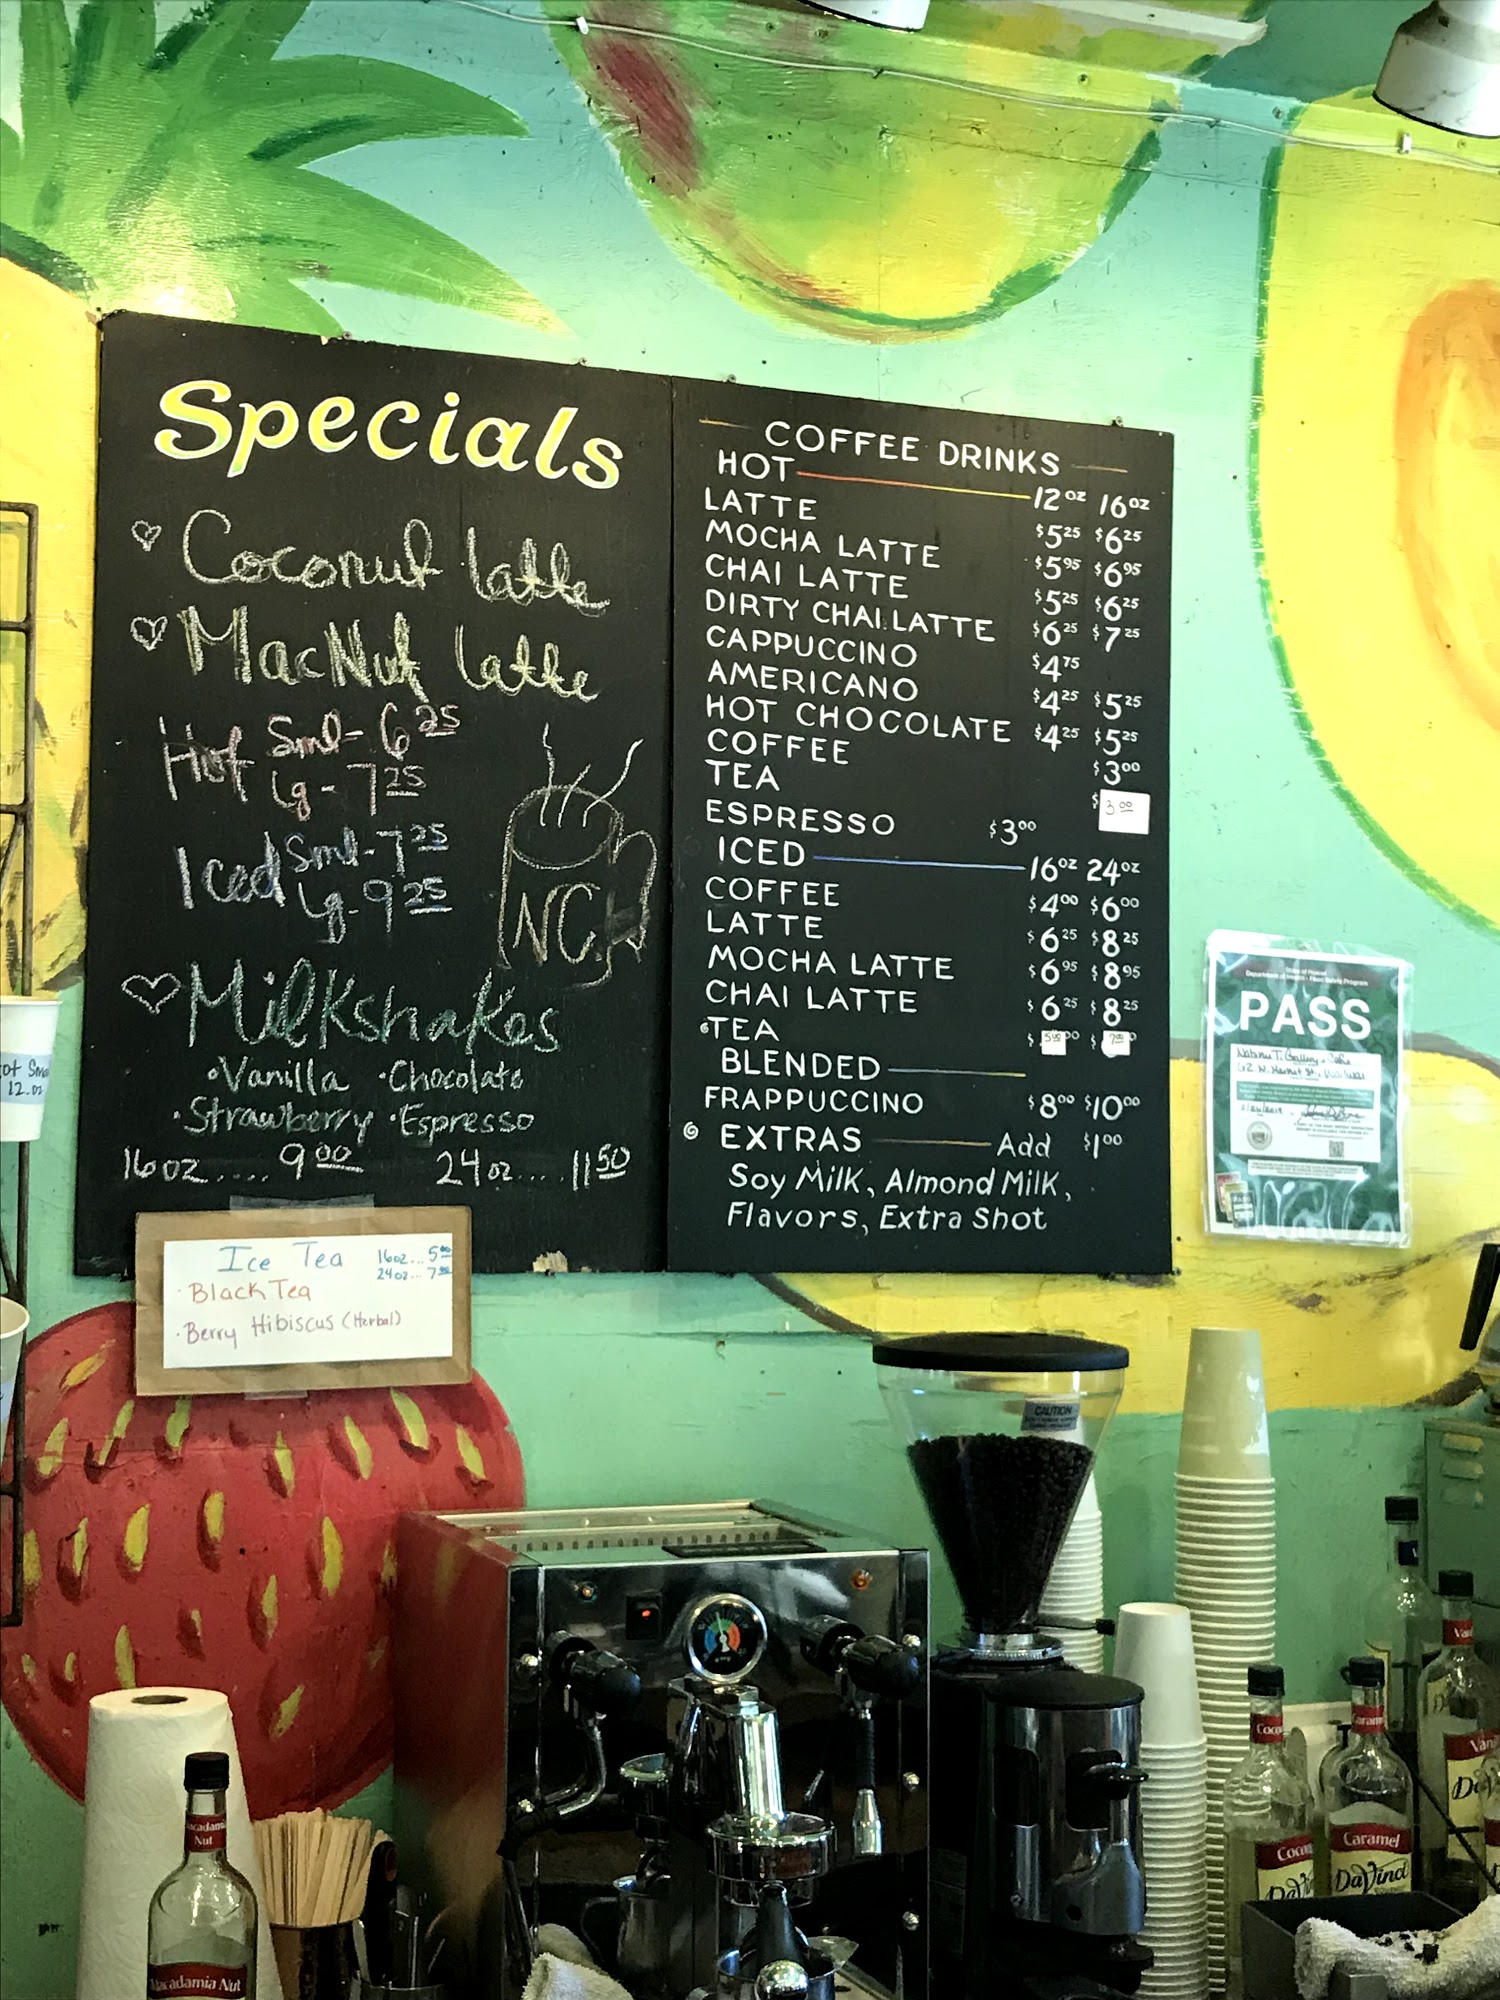 Specials
Coconut latte
MacNut latte
Hot Sml- 6 25
Lg- 7 25
Iced Sml- 7 25
Lg- 9 25
NC
Milkshakes
·Vanilla ·Chocolate
·Strawberry ·Espresso
16oz.... 9 00 24oz.... 11 50
COFFEE DRINKS
HOT 12 oz 16 oz
LATTE $5 25 $6 25
MOCHA LATTE $5 95 $6 95
CHAI LATTE $5 25 $6 25
DIRTY CHAI LATTE $6 25 $7 25
CAPPUCCINO $4 75
AMERICANO $4 25 $5 25
HOT CHOCOLATE $4 25 $5 25
COFFEE $3 00
TEA $3 00
ESPRESSO $3 00
ICED 16 oz 24 oz
COFFEE $4 00 $6 00
LATTE $6 25 $8 25
MOCHA LATTE $6 95 $8 95
CHAI LATTE $6 25 $8 25
TEA $5 00 $7 00
BLENDED
FRAPPUCCINO $8 00 $10 00
EXTRAS Add $1 00
Soy Milk, Almond Milk,
Flavors, Extra Shot
Ice Tea 16oz... 5 00
24oz... 7 00
·Black Tea
·Berry Hibiscus (Herbal)
State of Hawaii
Department of Health - Food Safety Program
PASS
12.oz
CAUTION
Macadamia
Nut
Macadamia Nut
Caramel
DaVinci